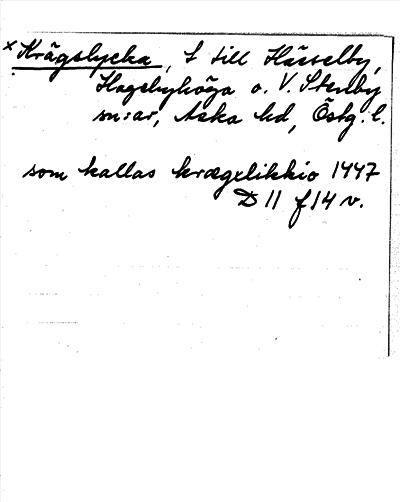 x Krågslycka, t till Hässelby,
Hagebyhöga o. V. Stenby
sn:ar, Aska hd, Östg. l.
som kallas krægxlikkio 1447
D 11 f 14 v.